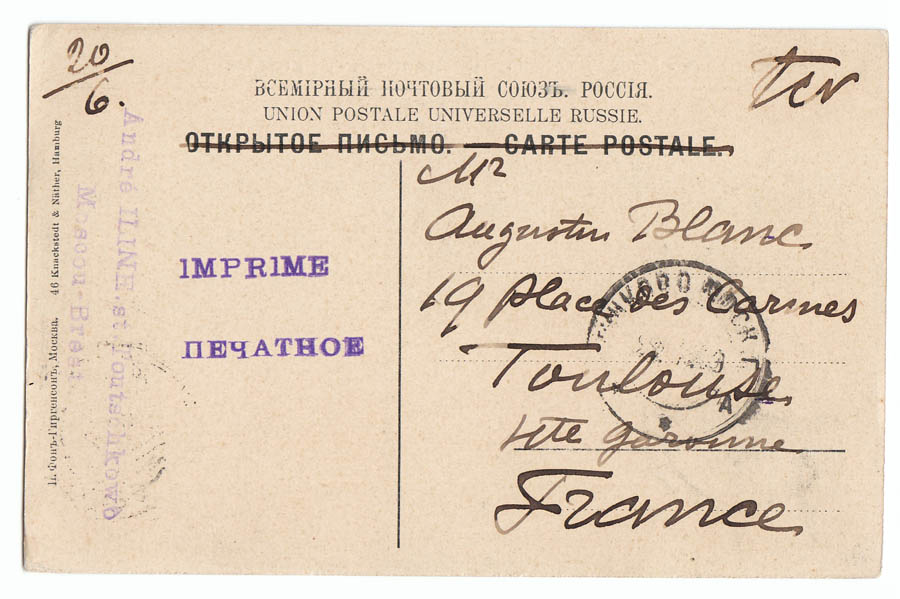 20/6.
tcv
ВСЕМІРНЫЙ ПОЧТОВЫЙ СОЮЗЪ. РОССІЯ.
UNION POSTALE UNIVERSELLE RUSSIE.
ОТКРЫТОЕ ПИСЬМО. — CARTE POSTALE.
Mr
Augustin Blanc
19 Place des Carmes
Toulouse
Hte Garonne
France
IMPRIME
ПЕЧАТНОЕ
André ILINE.st.Poutschkowo
Moscou-Brest
П. Фонъ-Гиргенсонъ, Москва. 46 Knackstedt & Näther, Hamburg
А